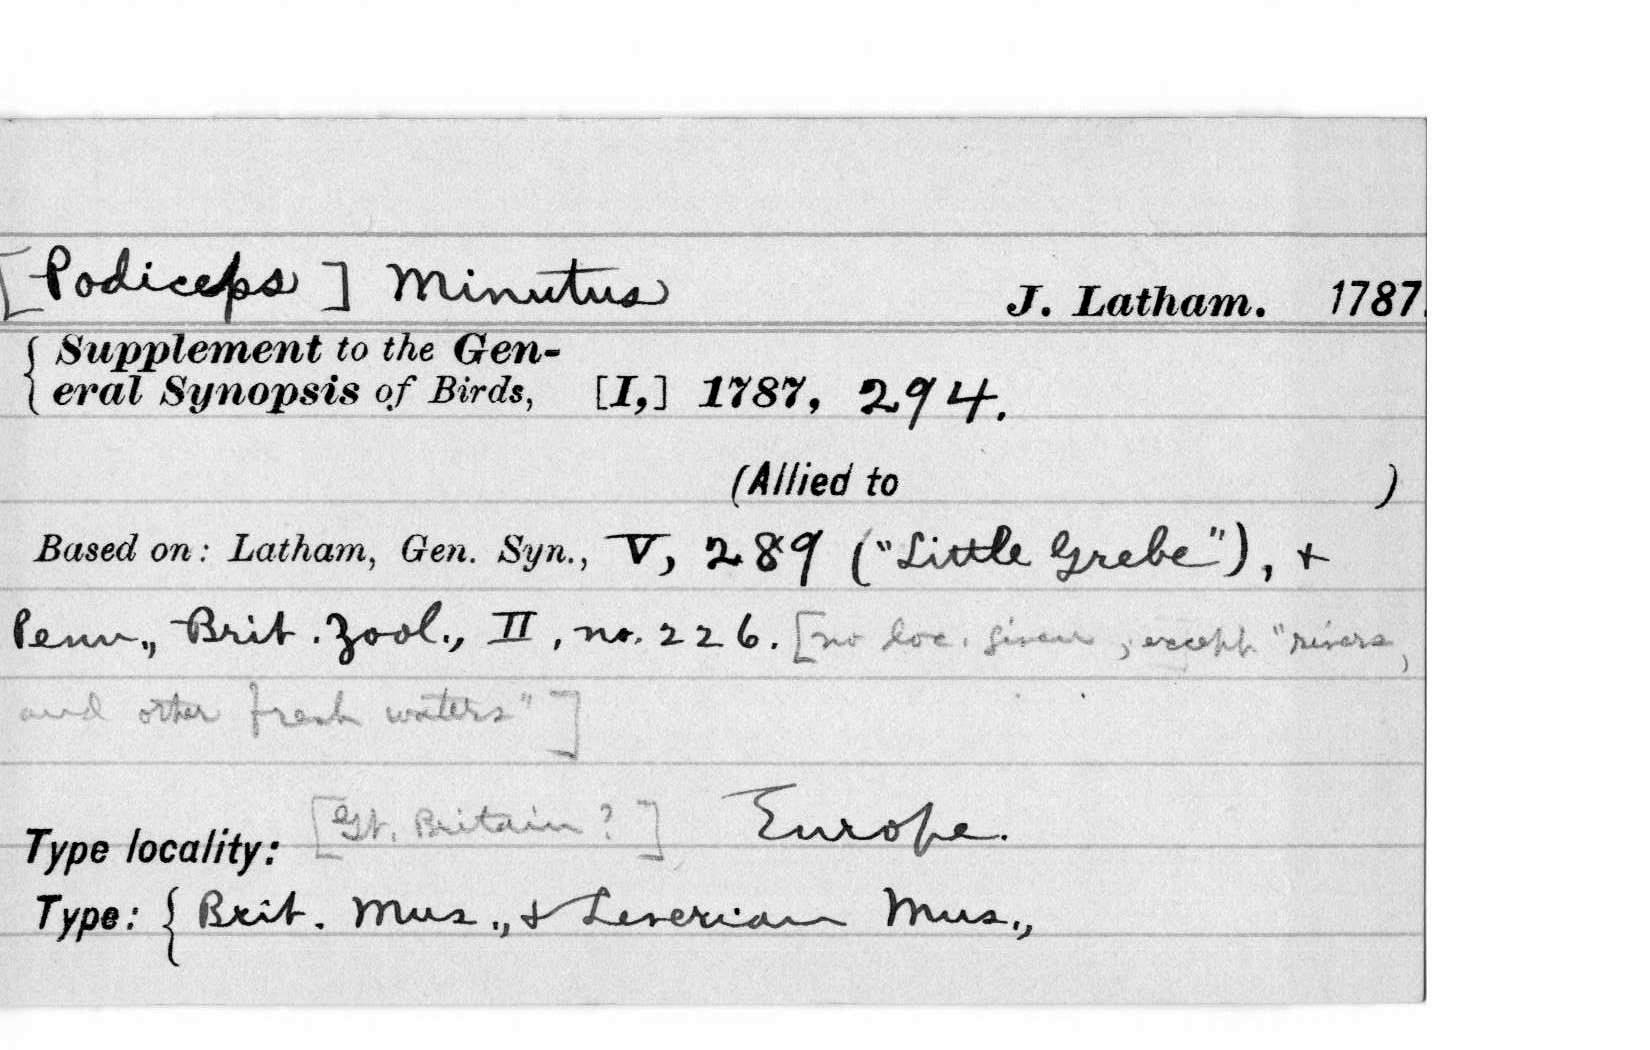 [Podiceps] Minutus J. Latham. 1787.
{ Supplement to the Gen-
eral Synopsis of Birds, [I,] 1787, 294.
(Allied to )
Based on: Latham, Gen. Syn., V, 289 ("Little Grebe"), +
Penn., Brit. Zool., II, no. 226. [no loc. given, except "rivers,
and other fresh waters"]
Type locality: [Gt. Britain?] Europe.
Type: { Brit. Mus., & Leverian Mus.,